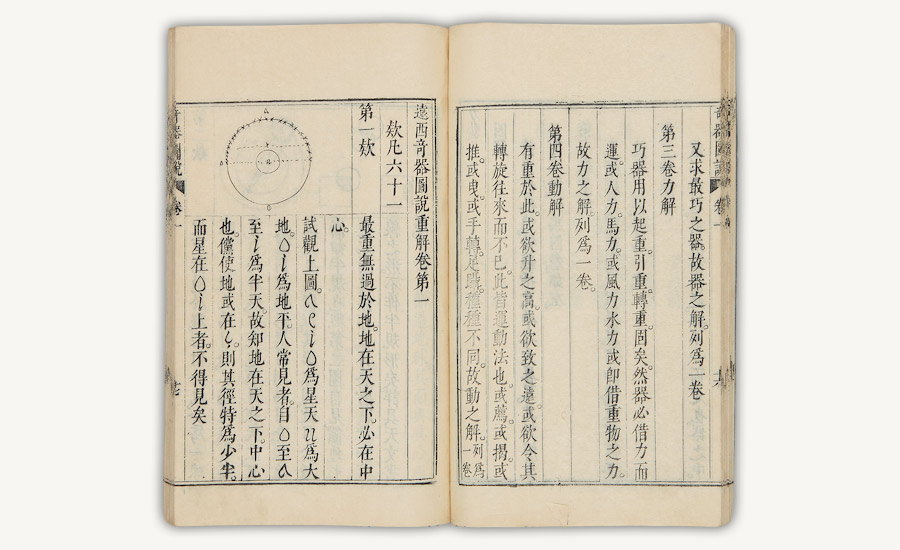 奇器圖說 卷一
又求最巧之器。故器之解。列爲一卷
第三卷力解
巧器用以起重。引重轉重。固矣。然器必借力而
運。或人力。馬力。或風力水力。或即借重物之力。
故力之解。列爲一卷。
第四卷動解
有重於此。或欲升之高。或欲致之遠。或欲令其
轉旋往來而不已。此皆運動法也。或薦。或揭。或
推。或曳。或手轉。足踐。種種不同。故動之解。列爲一卷
遠西奇器圖說重解卷第一
欵凡六十一
第一欵
最重無過於地。地在天之下。必在中
心。
試觀上圖。爲星天爲大
地。爲地平。人常見者。自至
至爲半天。故知地在天之下中心
也。儻使地或在。則其徑特爲少半。
而星在上者。不得見矣
奇器圖說 卷一